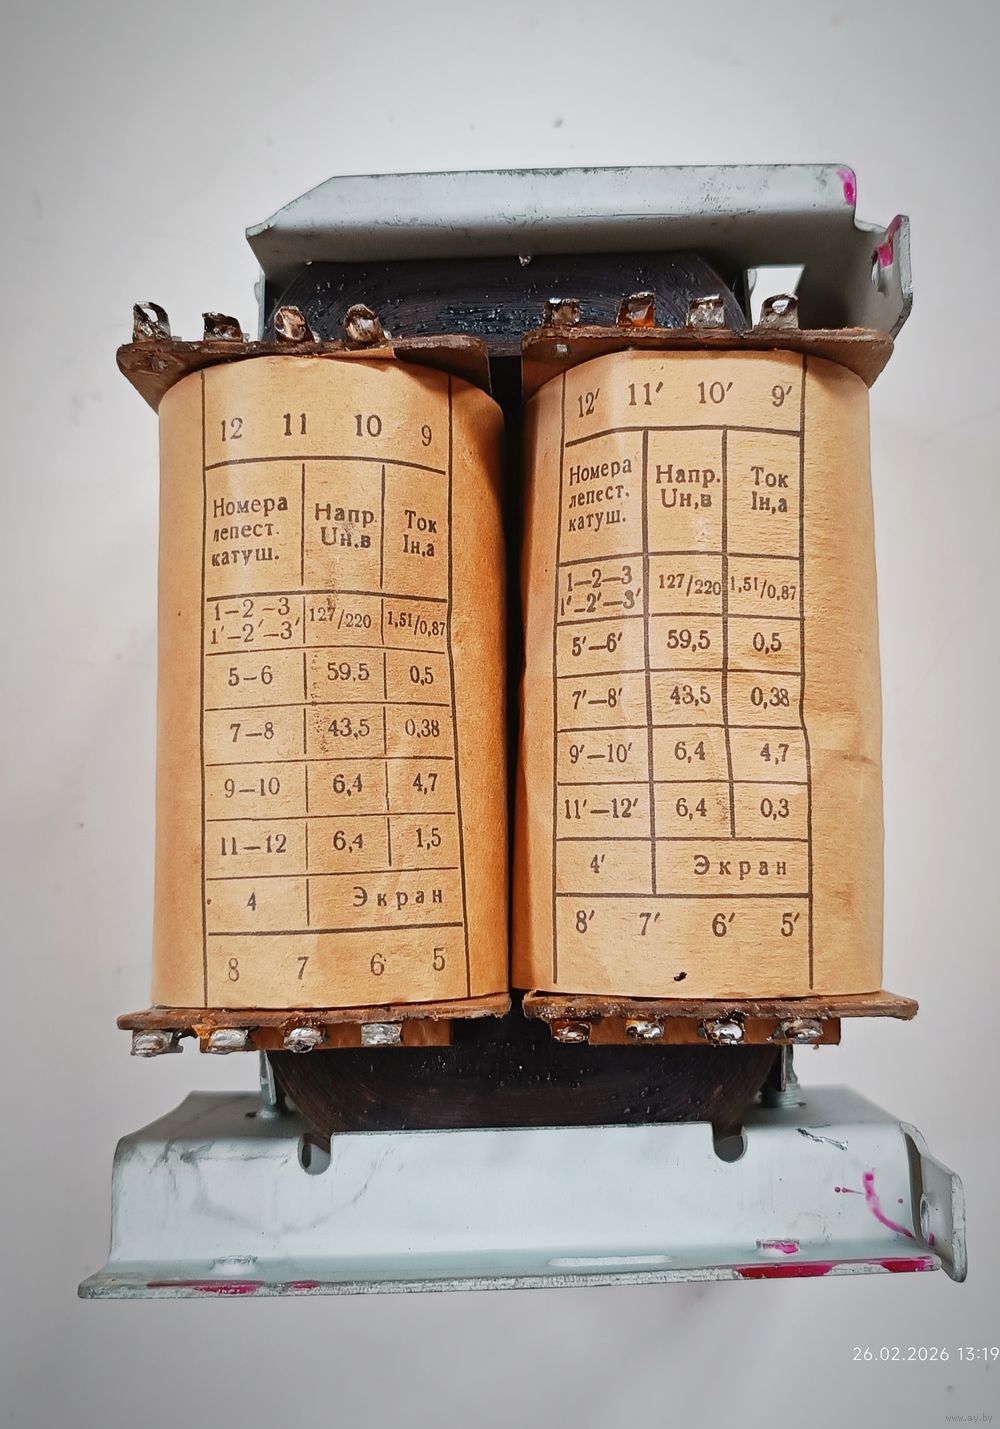 12 11 10 9
Номера
лепест.
катуш.
Напр.
Uн,в
Ток
Iн,а
1–2–3
1′–2′–3′
127/220
1,51/0,87
5–6 59,5 0,5
7–8 43,5 0,38
9–10 6,4 4,7
11–12 6,4 1,5
4 Экран
8 7 6 5
12′ 11′ 10′ 9′
Номера
лепест.
катуш.
Напр.
Uн,в
Ток
Iн,а
1–2–3
1′–2′–3′
127/220
1,51/0,87
5′–6′ 59,5 0,5
7′–8′ 43,5 0,38
9′–10′ 6,4 4,7
11′–12′ 6,4 0,3
4′ Экран
8′ 7′ 6′ 5′
26.02.2026 13:19
www.ay.by